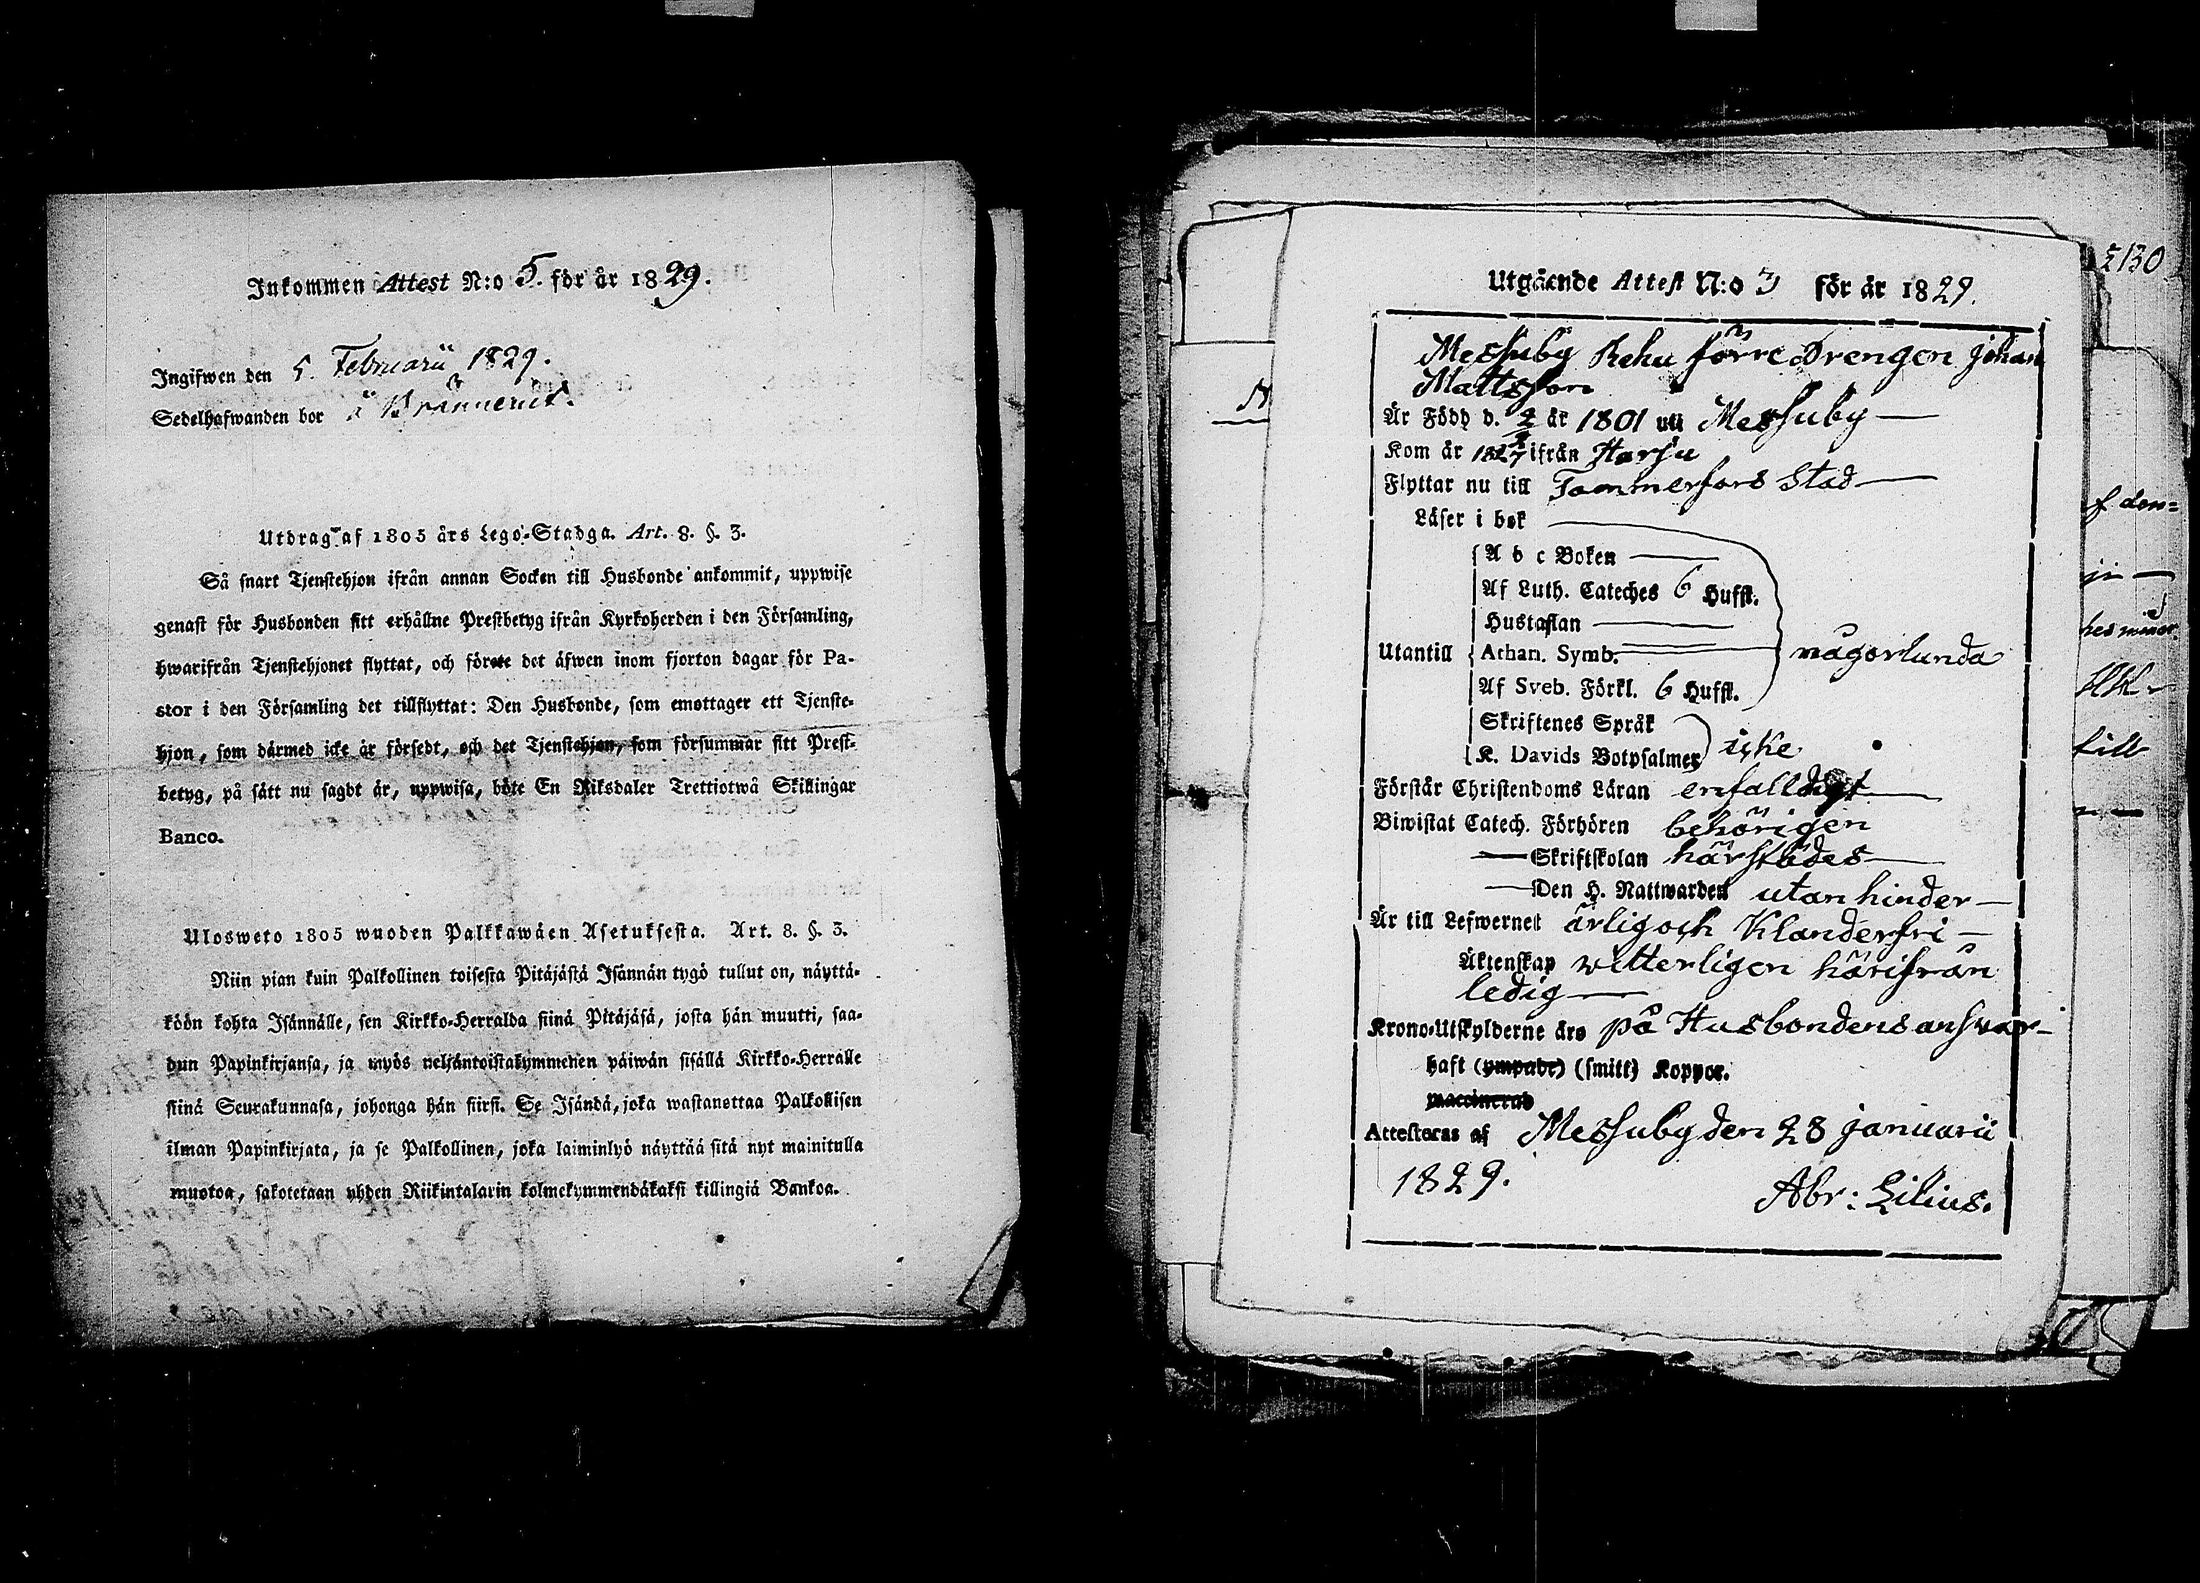 Inkommen Attest N:o 5. för år 1829.
Ingifwen den 5. Februarii 1829.
Sedelhafwanden bor å
Utdrag af 1805 års Lego-Stadga. Art. 8. §. 3.
Så snart Tjenstehjon ifrån annan Socken till Husbonde ankommit, uppwise
genast för Husbonden sitt erhållne Prestbetyg ifrån Kyrkoherden i den Församling,
hwarifrån Tjenstehjonet flyttat, och förete det äfwen inom fjorton dagar för Pa-
stor i den Församling det tillflyttat: Den Husbonde, som emottager ett Tjenste-
hjon, som därmed icke är försedt, och det Tjenstehjon, som försummar sitt Prest-
betyg, på sätt nu sagdt är, uppwisa, böte En Riksdaler Trettiotwå Skillingar
Banco.
Ulosweto 1805 wuoden Palkkawäen Asetuksesta. Art. 8. §. 3.
Niin pian kuin Palkollinen toisesta Pitäjästä Isännän tygö tullut on, näyttä-
köön kohta Isännälle, sen Kirkko-Herralda siinä Pitäjäsä, josta hän muutti, saa-
dun Papinkirjansa, ja myös neljäntoistakymmenen päiwän sisällä Kirkko-Herralle
siinä Seurakunnasa, johonga hän siirsi. Se Isändä, joka wastanottaa Palkollisen
ilman Papinkirjata, ja se Palkollinen, joka laiminlyö näyttää sitä nyt mainitulla
muotoa, sakotetaan yhden Riikintalarin kolmekymmendäkaksi killingiä Bankoa.
Utgående Attest N:o 3 för år 1829.
Messuby Rehu förre Drengen Johan
Mattsson
Är Född d. 2/2 år 1801 uti Messuby
Kom år 1827 ifrån Harju
Flyttar nu till Tammerfors Stad
Läser i bok
A b c Boken
Af Luth. Cateches 6 Hufst.
Hustaflan
Utantill Athan. Symb. någorlunda
Af Sveb. Förkl. 6 Hufst.
Skriftenes Språk
K. Davids Botpsalmer icke
Förstår Christendoms Läran enfalldigt
Biwistat Catech. Förhören behörigen
Skriftskolan härstädes
Den H. Nattwarden utan hinder
Är till Lefwernet ärlig och Klanderfri
Äktenskap witterligen härifrån
ledig
Krono-Utskylderne äro på Husbondens answar
haft (ympade) (smitt) Koppor.
vaccinerad
Attesteras af Messuby den 28 januarii
1829. Abr: Lilius.
2130
f den=
till